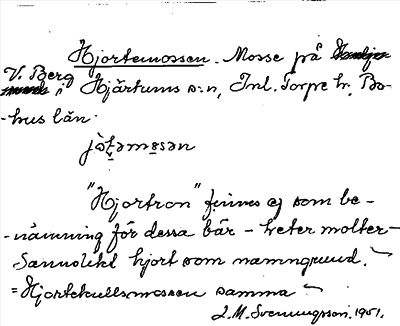 Hjortemossen. Mosse på
V. Berg i Hjärtums s:n, Inl. Torpe hr, Bo-
-hus län.
"Hjortron" finnes ej som be-
-nämning för dessa bär - heter molter-
Sannolikt hjort som namngrund.
= Hjortekullsmossen samma
L.M. Svenungsson. 1951.